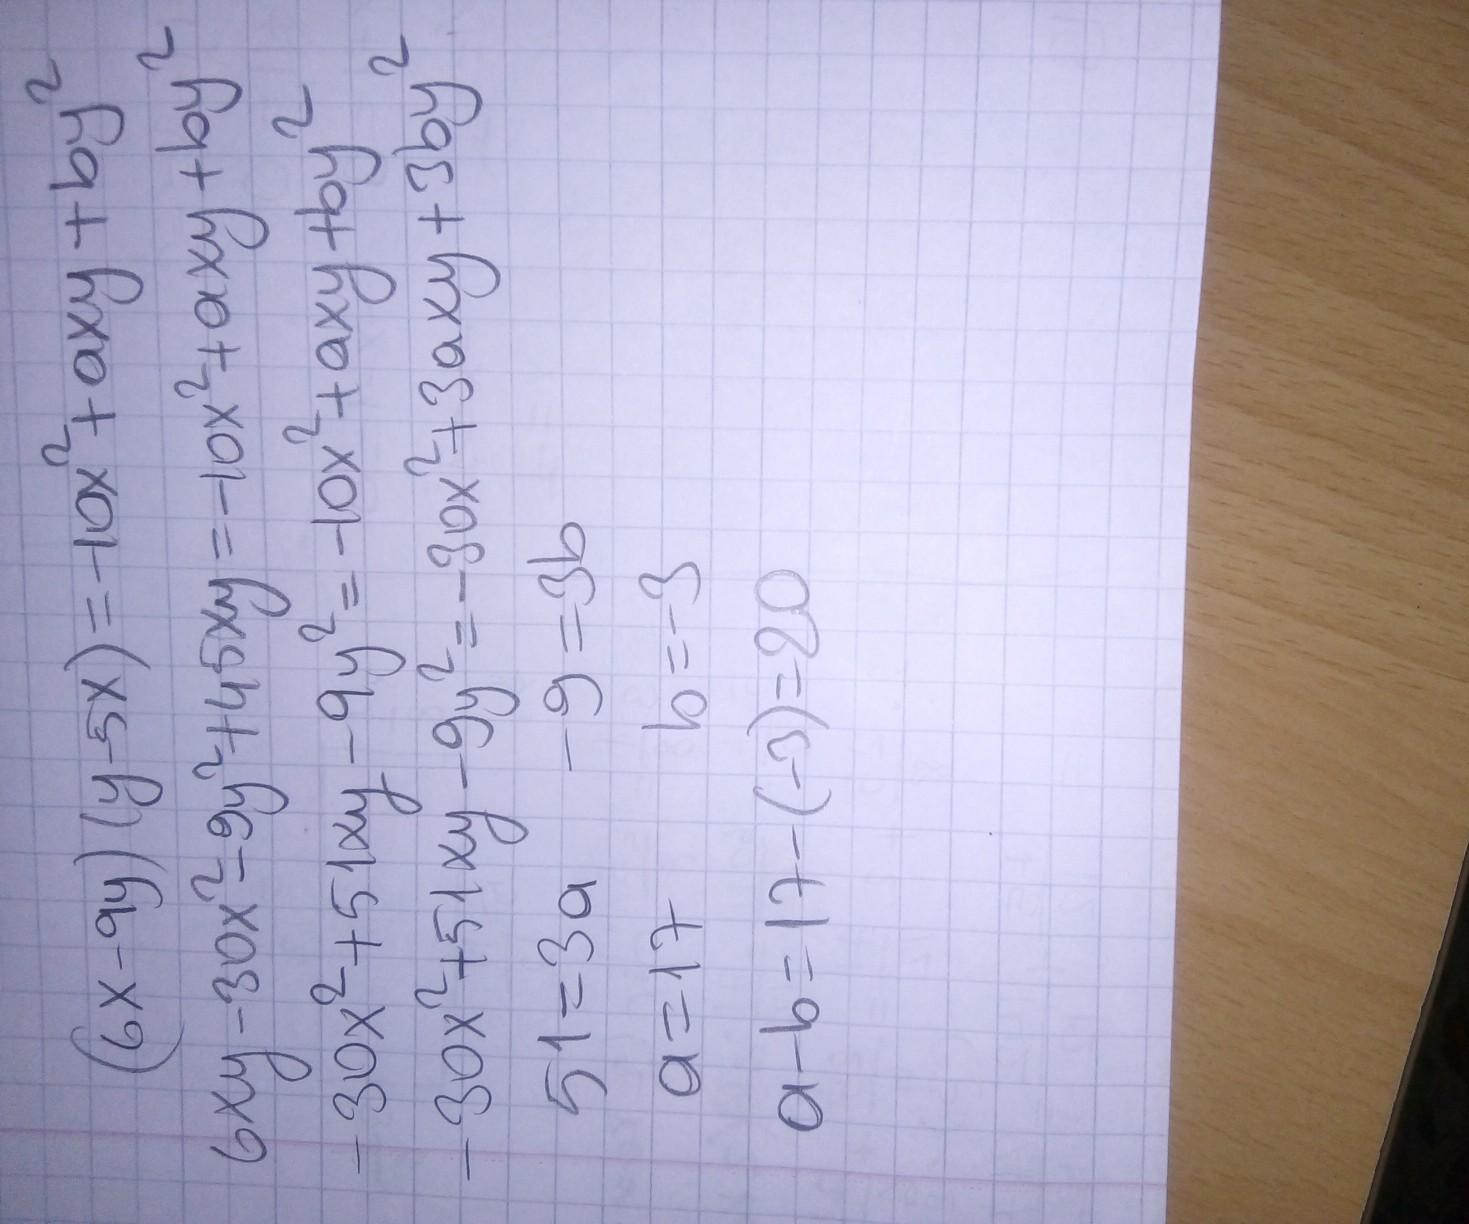 (6x-9y)(y-5x)=-10x²+axy+by²
6xy-30x²-9y²+45xy=-10x²+axy+by²
-30x²+51xy-9y²=-10x²+axy+by²
-30x²+51xy-9y²=-30x²+3axy+3by²
51=3a -9=3b
a=17 b=-3
a-b=17-(-3)=20